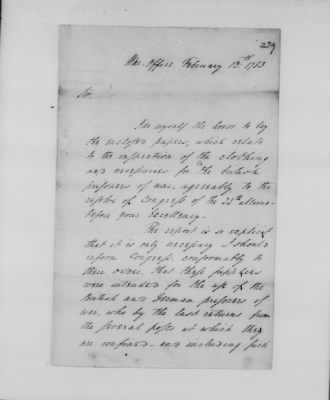 239
War-Office February 13th 1783
Sir,
I do myself the honor to lay
the inclosed papers, which relate
to the inspection of the clothing
and necessaries for the british
prisoners of war, agreeably to the
resolve of Congress of the 24th ultimo
before your Excellency.
The report is so explicit
that it is only necessary I should
inform Congress, conformably to
their order, that these supplies
were intended for the use of the
British and German prisoners of
war, who by the last returns from
the several posts at which they
are confined - and including such